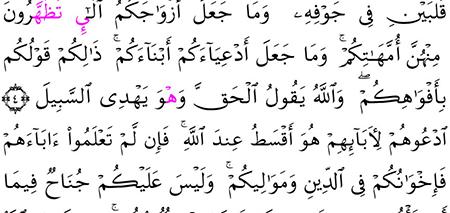 قَلۡبَيۡنِ فِي جَوۡفِهِۦۚ وَمَا جَعَلَ أَزۡوَٰجَكُمُ ٱلَّٰٓيِٕ تَظَّهَّرُونَ
مِنۡهُنَّ أُمَّهَٰتِكُمۡۚ وَمَا جَعَلَ أَدۡعِيَآءَكُمۡ أَبۡنَآءَكُمۡۚ ذَٰلِكُمۡ قَوۡلُكُم
بِأَفۡوَٰهِكُمۡۖ وَٱللَّهُ يَقُولُ ٱلۡحَقَّ وَهۡوَ يَهۡدِي ٱلسَّبِيلَ ٤
ٱدۡعُوهُمۡ لِأٓبَآئِهِمۡ هُوَ أَقۡسَطُ عِندَ ٱللَّهِۚ فَإِن لَّمۡ تَعۡلَمُوٓاْ ءَابَآءَهُمۡ
فَإِخۡوَٰنُكُمۡ فِي ٱلدِّينِ وَمَوَٰلِيكُمۡۚ وَلَيۡسَ عَلَيۡكُمۡ جُنَاحٞ فِيمَآ